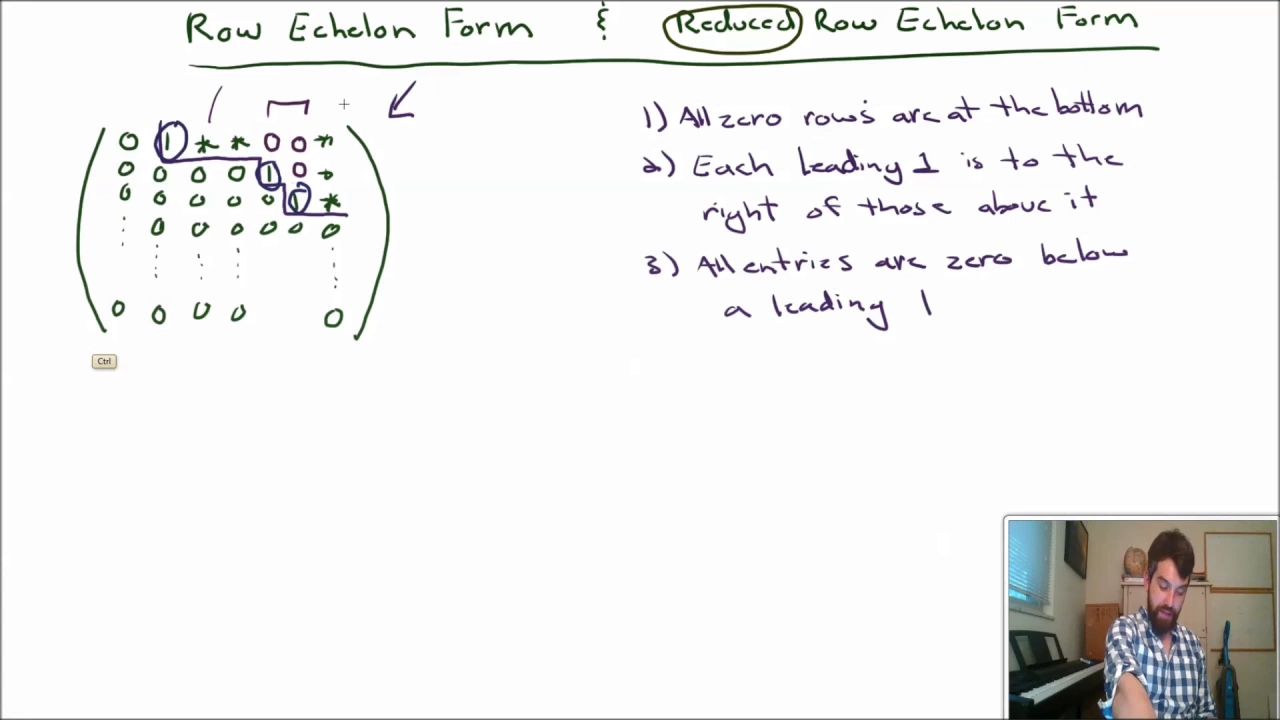 Row Echelon Form & Reduced Row Echelon Form
0 1 * * 0 0 *
0 0 0 0 1 0 *
0 0 0 0 0 1 *
0 0 0 0 0 0
0 0 0 0 0
1) All zero rows are at the bottom
2) Each leading 1 is to the
right of those above it
3) All entries are zero below
a leading 1
Ctrl